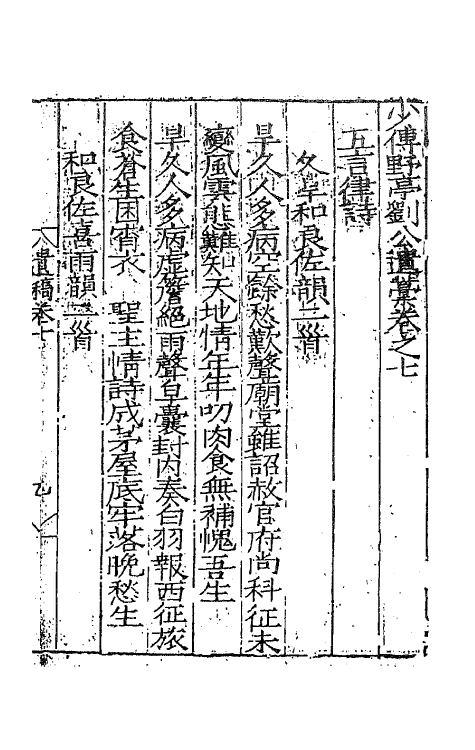 少傅野亭劉公遺稾卷之七
五言律詩
久旱和良佐韻二首
旱久人多病空餘愁歎聲廟堂雖詔赦官府尚科征未
變風雲態難知天地情年年叨肉食無補愧吾生
旱久人多病虛簷絕雨聲皁囊封內奏白羽報西征旅
食蒼生困宵衣 聖主情詩成茅屋底牢落晚愁生
和良佐喜雨韻二首
遺稿卷七